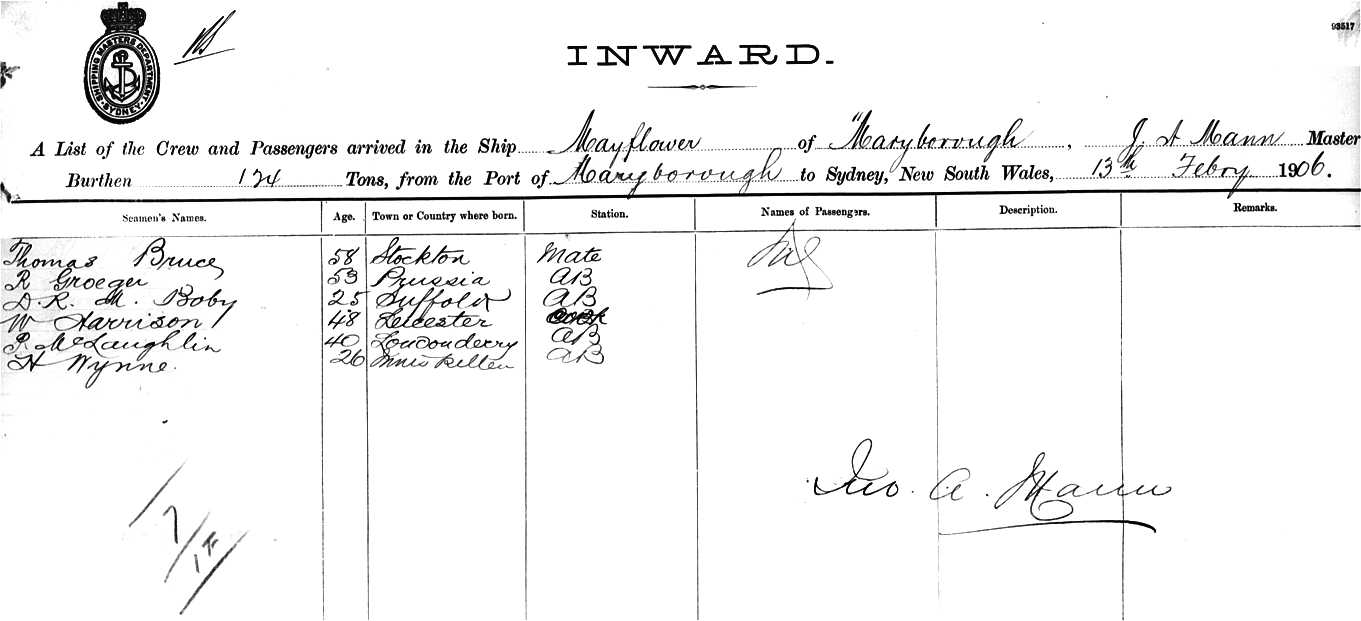 93517
SHIPPING MASTERS DEPARTMENT
SYDNEY
INWARD.
A List of the Crew and Passengers arrived in the Ship Mayflower of "Maryborough, J A Mann Master
Burthen 124 Tons, from the Port of Maryborough to Sydney, New South Wales, 13th Febry 1906.
Seamen's Names. Age. Town or Country where born. Station. Names of Passengers. Description. Remarks.
Thomas Bruce 58 Stockton Mate Nil
R Groeger 53 Prussia AB
D. R. M. Boby 25 Suffolk AB
W Harrison 48 Leicester Cook
P. McLaughlin 40 Londonderry AB
H Wynne. 26 Inniskillen AB
Jno. A. Mann
7